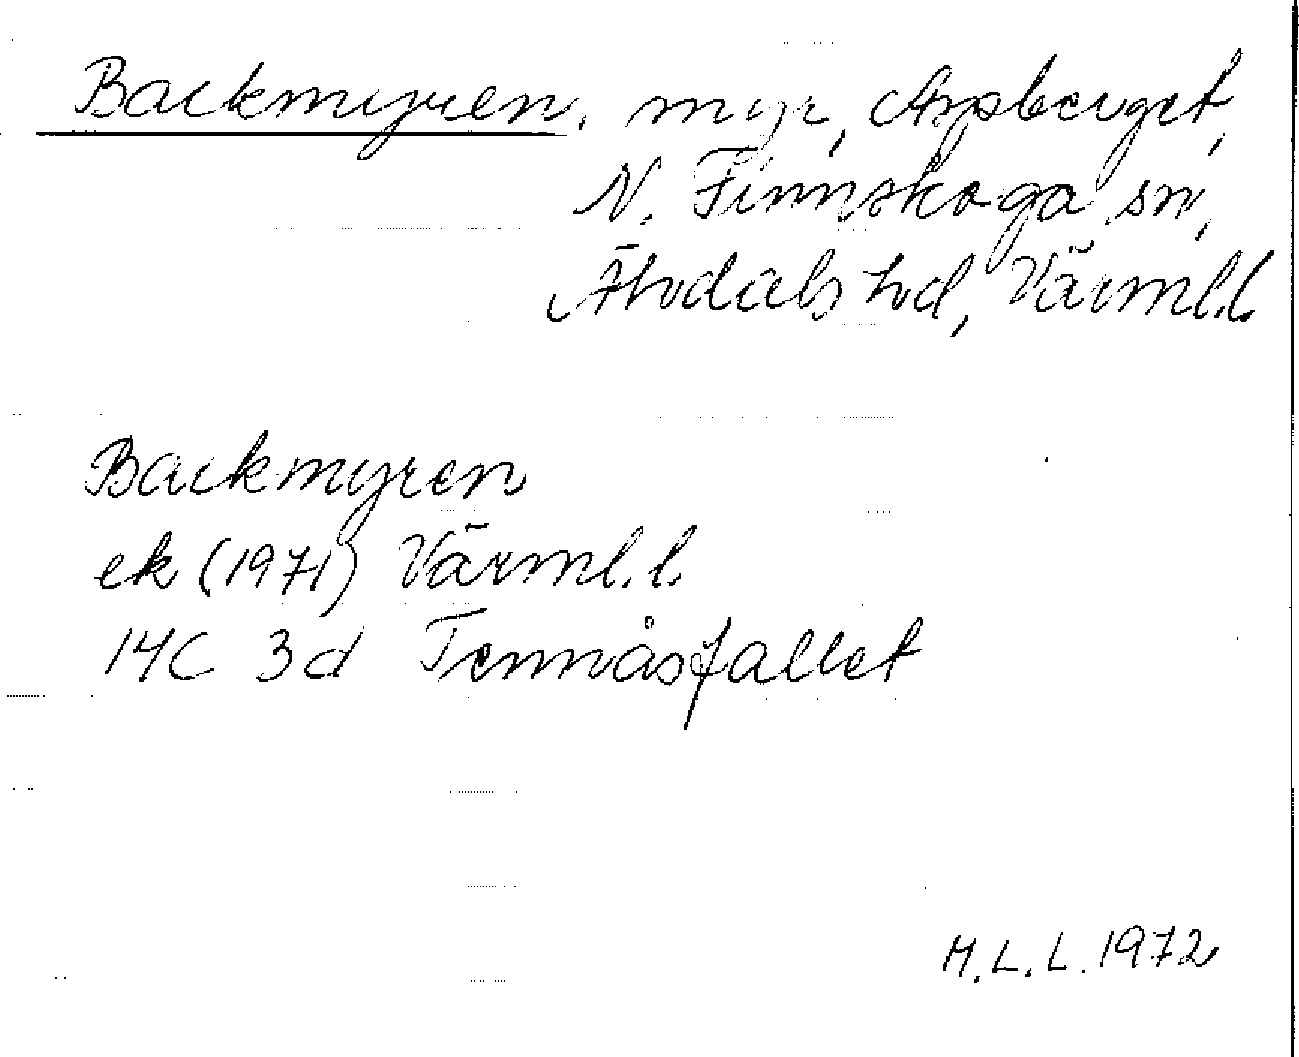 Backmyren, myr, Aspberget,
N. Finnskoga sn,
Älvdals hd, Värml.l.
Backmyren
ek (1971) Värml.l.
14C 3d Tennåsfallet
M.L.L. 1972